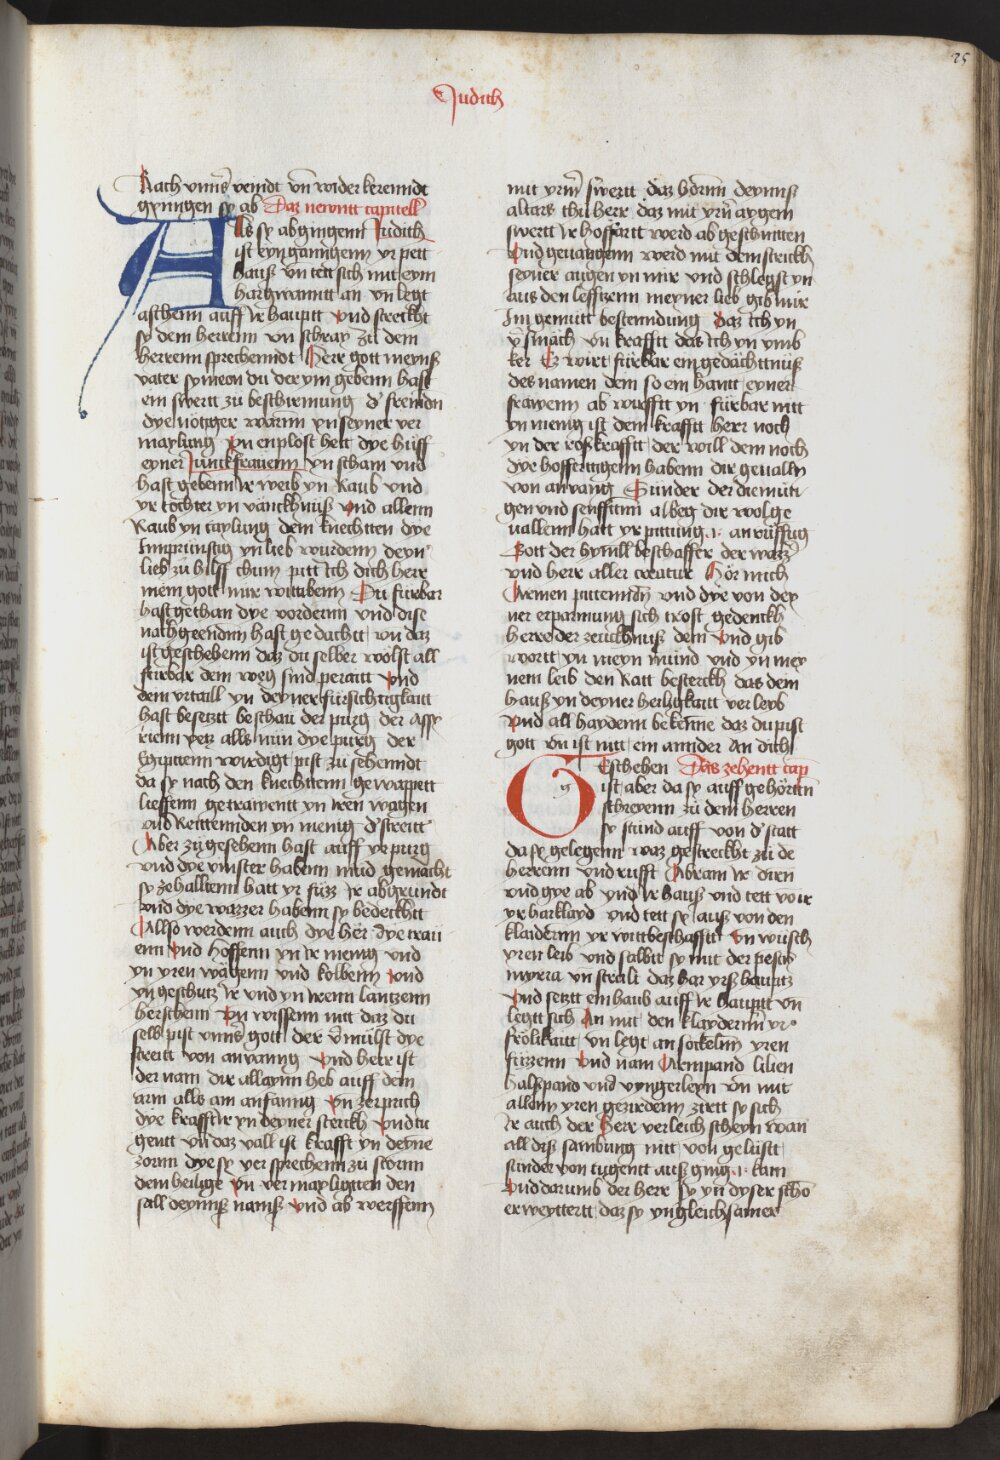 25
Judith
Nach vnns̄ veindt vn̄ wider kerenndt
gyningen sy ab Daz newntt capitell
Als sy abgingenn Judith
ist eyn ganngenn yr pett
hauß vn̄ tett sich mit eym
hargwanntt an vn̄ legt
aschenn auff ir hauptt vnd streckht
sy dem herrenn vn̄ schray zu dem
herrenn sprechenndt Herr gott meynß
vater symeon du der ym gebenn hast
ein swertt zu beschirmung d' fremdn
dye nöttger warnn yn seyner ver
maylung vn̄ enplöst hett dye hüff
eyner Junckfrauenn yn scham vnd
hast gebenn ir weib yn Raub vnd
yr töchter yn vänckhnüß vnd allenn
Raub yn taylung dem knechtten dye
Inprünstig yn lieb wurdenn deyn
lieb zu hilff chum pitt ich dich herr
mein gott mir wittibenn Du fürbar
hast gethan dye vordernn vnd dise
nachgeendnn hast gedachtt vn̄ daz
ist geschehenn daz du selber wolst all
fürbar dein weg sind peraitt vnd
dein vrtaill yn deyner fürsichtigkaitt
hast besetztt beschau der purg der assy
rienn yetz alls nün dye purg der
Egipttenn wirdigt pist zu sehenndt
da sy nach den knechttenn gewappett
lieffenn getrawentt yn iren wägen
vnd Reittennden yn menig d' streitt
Aber zugesehenn hast auff yr purg
vnd dye vinster habenn müd gemacht
sy ze halltenn hatt yr füzz ir abgrundt
vnd dye wazzer habenn sy bedeckhtt
Allso werdenn auch dye her dye trau
enn vnd hoffenn yn ir menig vnd
yn yren wägenn vnd kolbenn vnd
yn geschutz ir vnd yn irenn lantzenn
herschenn vn̄ wissenn nitt daz du
selb pist vnns̄ gott der v'mülst dye
streitt von anvanng vnd herr ist
der nam dir allaynn heb auff dein
arm alls am anfanng vn̄ zerprich
dye krafft ir yn deyner sterckh vnd tu
gentt vn̄ daz vall ist krafft yn deyne
zornn dye sy versprechenn zu störnn
dem heilige vn̄ vermayligtten den
sall deynnß namß vnd ab werffenn
mit yrm swertt daz hornn deynnß
altars thu herr daz mit yrn̄ aygem
swertt ir hoffartt werd abgeschnitten
Vnd geuanngenn werd mit dem strickh
seyner augen yn mir vnd schlegst yn
aus den leffttzenn meyner lieb gib mir
Im gemütt bestenndung daz ich yn
v'smäch vn̄ krafftt das ich yn vmb
ker Ez wirt fürbar ein gedächttnüß
des namen dein so ein hantt eyner
frawenn ab wirfftt yn fürbar nitt
yn menig ist dein krafftt herr noch
yn der roßkrafftt der will dein noch
dye hoffertigenn habenn dir geualln
von anvang Sünder der diemüti
gen vnd senfftnn albeg dir wolge
uallenn hatt yr pittung .i. anrüffug
Gott der hymll beschaffer der wazz'
vnd herr aller creatur Hör mich
Armen pittennden vnd dye von dey
ner erparmung sich tröst gedenckh
herr der zeuckhnuß dein vnd gib
wortt yn meyn mund vnd yn mey
nem leib den Ratt besterckh das dein
hauß yn deyner heiligkaitt verleyb
vnd all haydenn bekenne daz du pist
gott vn̄ ist nitt ein annder an dich
Gescheben Das zehentt cap
ist aber da sy auff gehörtten
schreyenn zu dem herren
sy stund auff von d' statt
da sy gelegenn waz gestreckht zu de
herrenn vnd rufft Abram ir dirn
vnd gye ab ynd ir hauß vnd tett von ir
yr harklayd vnd tett sy auß von den
klaidernn yr wittbeschafftt vn̄ wusch
yren leib vnd salbtt sy mit der pesten
myrra vn̄ strält daz har yrß hauptz
Vnd setzt ein haub auff ir hauptt vn̄
legtt sich An mit den klaydernn yr
frölikaitt vn̄ legt an söckelin yren
füzzenn vnd nam Armpand lilien
halspand vnd vyngerleyn vn̄ mit
allenn yren gezirdenn zirtt sy sich
Ir auch der Herr verleich scheyn wan
all dyß sambung nitt von gelüstt
sunder von tugentt auß ging .i. kam
Vnd darumb der herr sy yn dyser schö
erweyttertt daz sy vngleichsamer